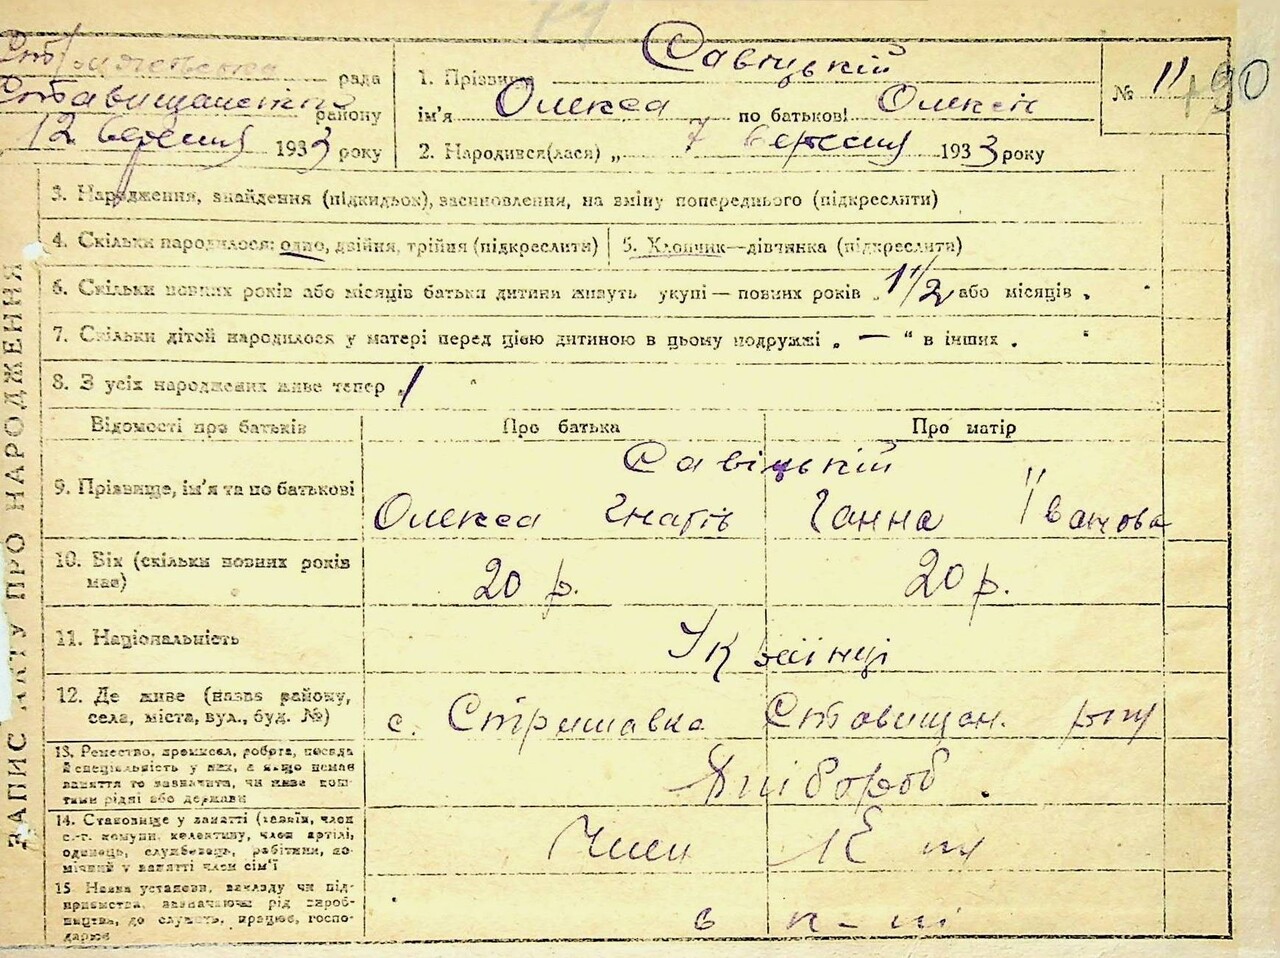 74
рада
Ставищанській
району
12 вересня 1933 року
1. Прізвище Савіцькій
ім'я Олекса по батькові Олексій
№ 11 490
2. Народився(лася) „ 7 вересня 1933 року
ЗАПИС АКТУ ПРО НАРОДЖЕННЯ
3. Народження, знайдення (підкидьок), всиновлення, на зміну попереднього (підкреслити)
4. Скільки народилося: одно, двійня, трійня (підкреслити)
5. Хлопчик—дівчинка (підкреслити)
6. Скільки повних років або місяців батьки дитини живуть укупі — повних років „ 1 1/2 або місяців „
7. Скільки дітей народилося у матері перед цією дитиною в цьому подружжі „ — " в інших „
8. З усіх народжених живе тепер „ 1
Відомості про батьків
Про батька
Про матір
9. Прізвище, ім'я та по батькові
Савіцькій
Олекса Гнатів
Ганна Івановa
10. Вік (скільки повних років
має)
20 р.
20 р.
11. Національність
Українці
12. Де живе (назва району,
села, міста, вул., буд. №)
с. Стришавка Ставищан. р-ну
13. Ремество, промисел, робота, посада
й спеціяльність у них, а якщо немає
заняття то зазначити, чи живе кош-
тами рідні або держави
Хлібороб.
14. Становище у занятті (хазяїн, член
с.-г. комуни, колективу, член артілі,
одинець, службовець, робітник, по-
мічний у занятті член сім'ї
Член
15 Назва установи, закладу чи під-
приємства, зазначаючи рід вироб-
ництва, де служить, працює, госпо-
дарює
в к-пі